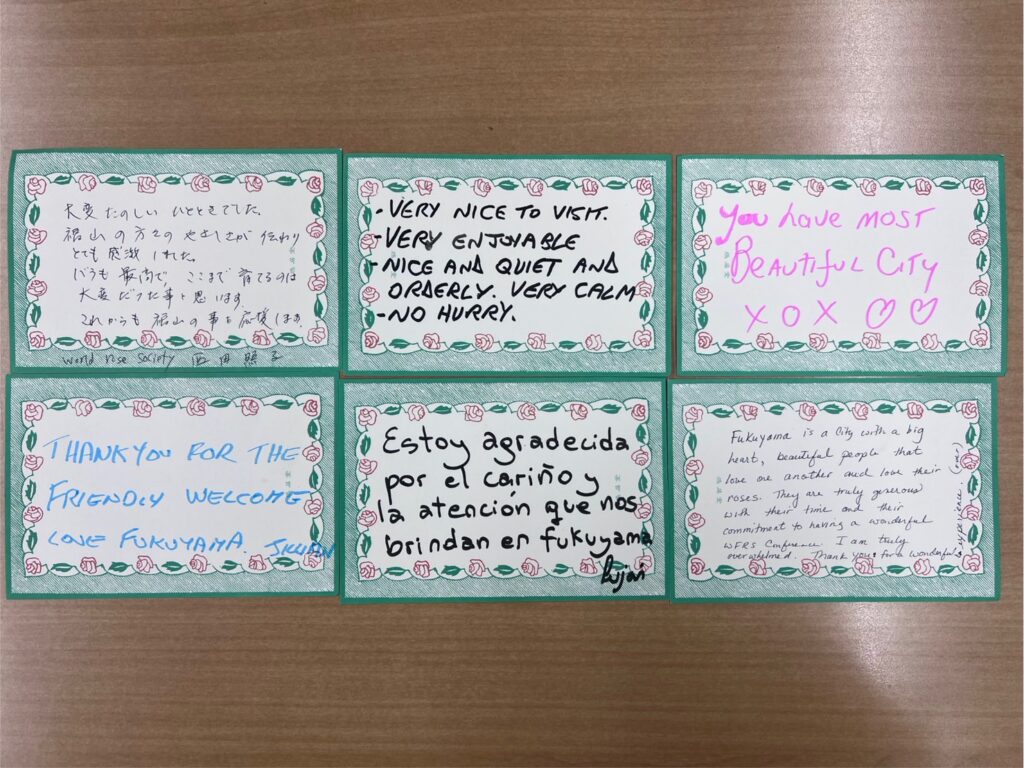 大変たのしいひとときでした。
福山の方々のやさしさが伝わり
とても感激しました。
ここまで育てるのは
大変だった事と思います。
これからも福山の事を応援します。
World rose society
- VERY NICE TO VISIT.
- VERY ENJOYABLE
- NICE AND QUIET AND
ORDERLY. VERY CALM
- NO HURRY.
You have most
Beautiful City
X O X ♡ ♡
THANK YOU FOR THE
FRIENDLY WELCOME
LOVE FUKUYAMA. JILLIAN
Estoy agradecida
por el cariño y
la atención que nos
brindan en fukuyama
Fukuyama is a City with a big
heart, beautiful people that
love one another and love their
roses. They are truly generous
with their time and their
commitment to having a wonderful
WFRS Conference. I am truly
overwhelmed. Thank you for a wonderful
experience. (over)